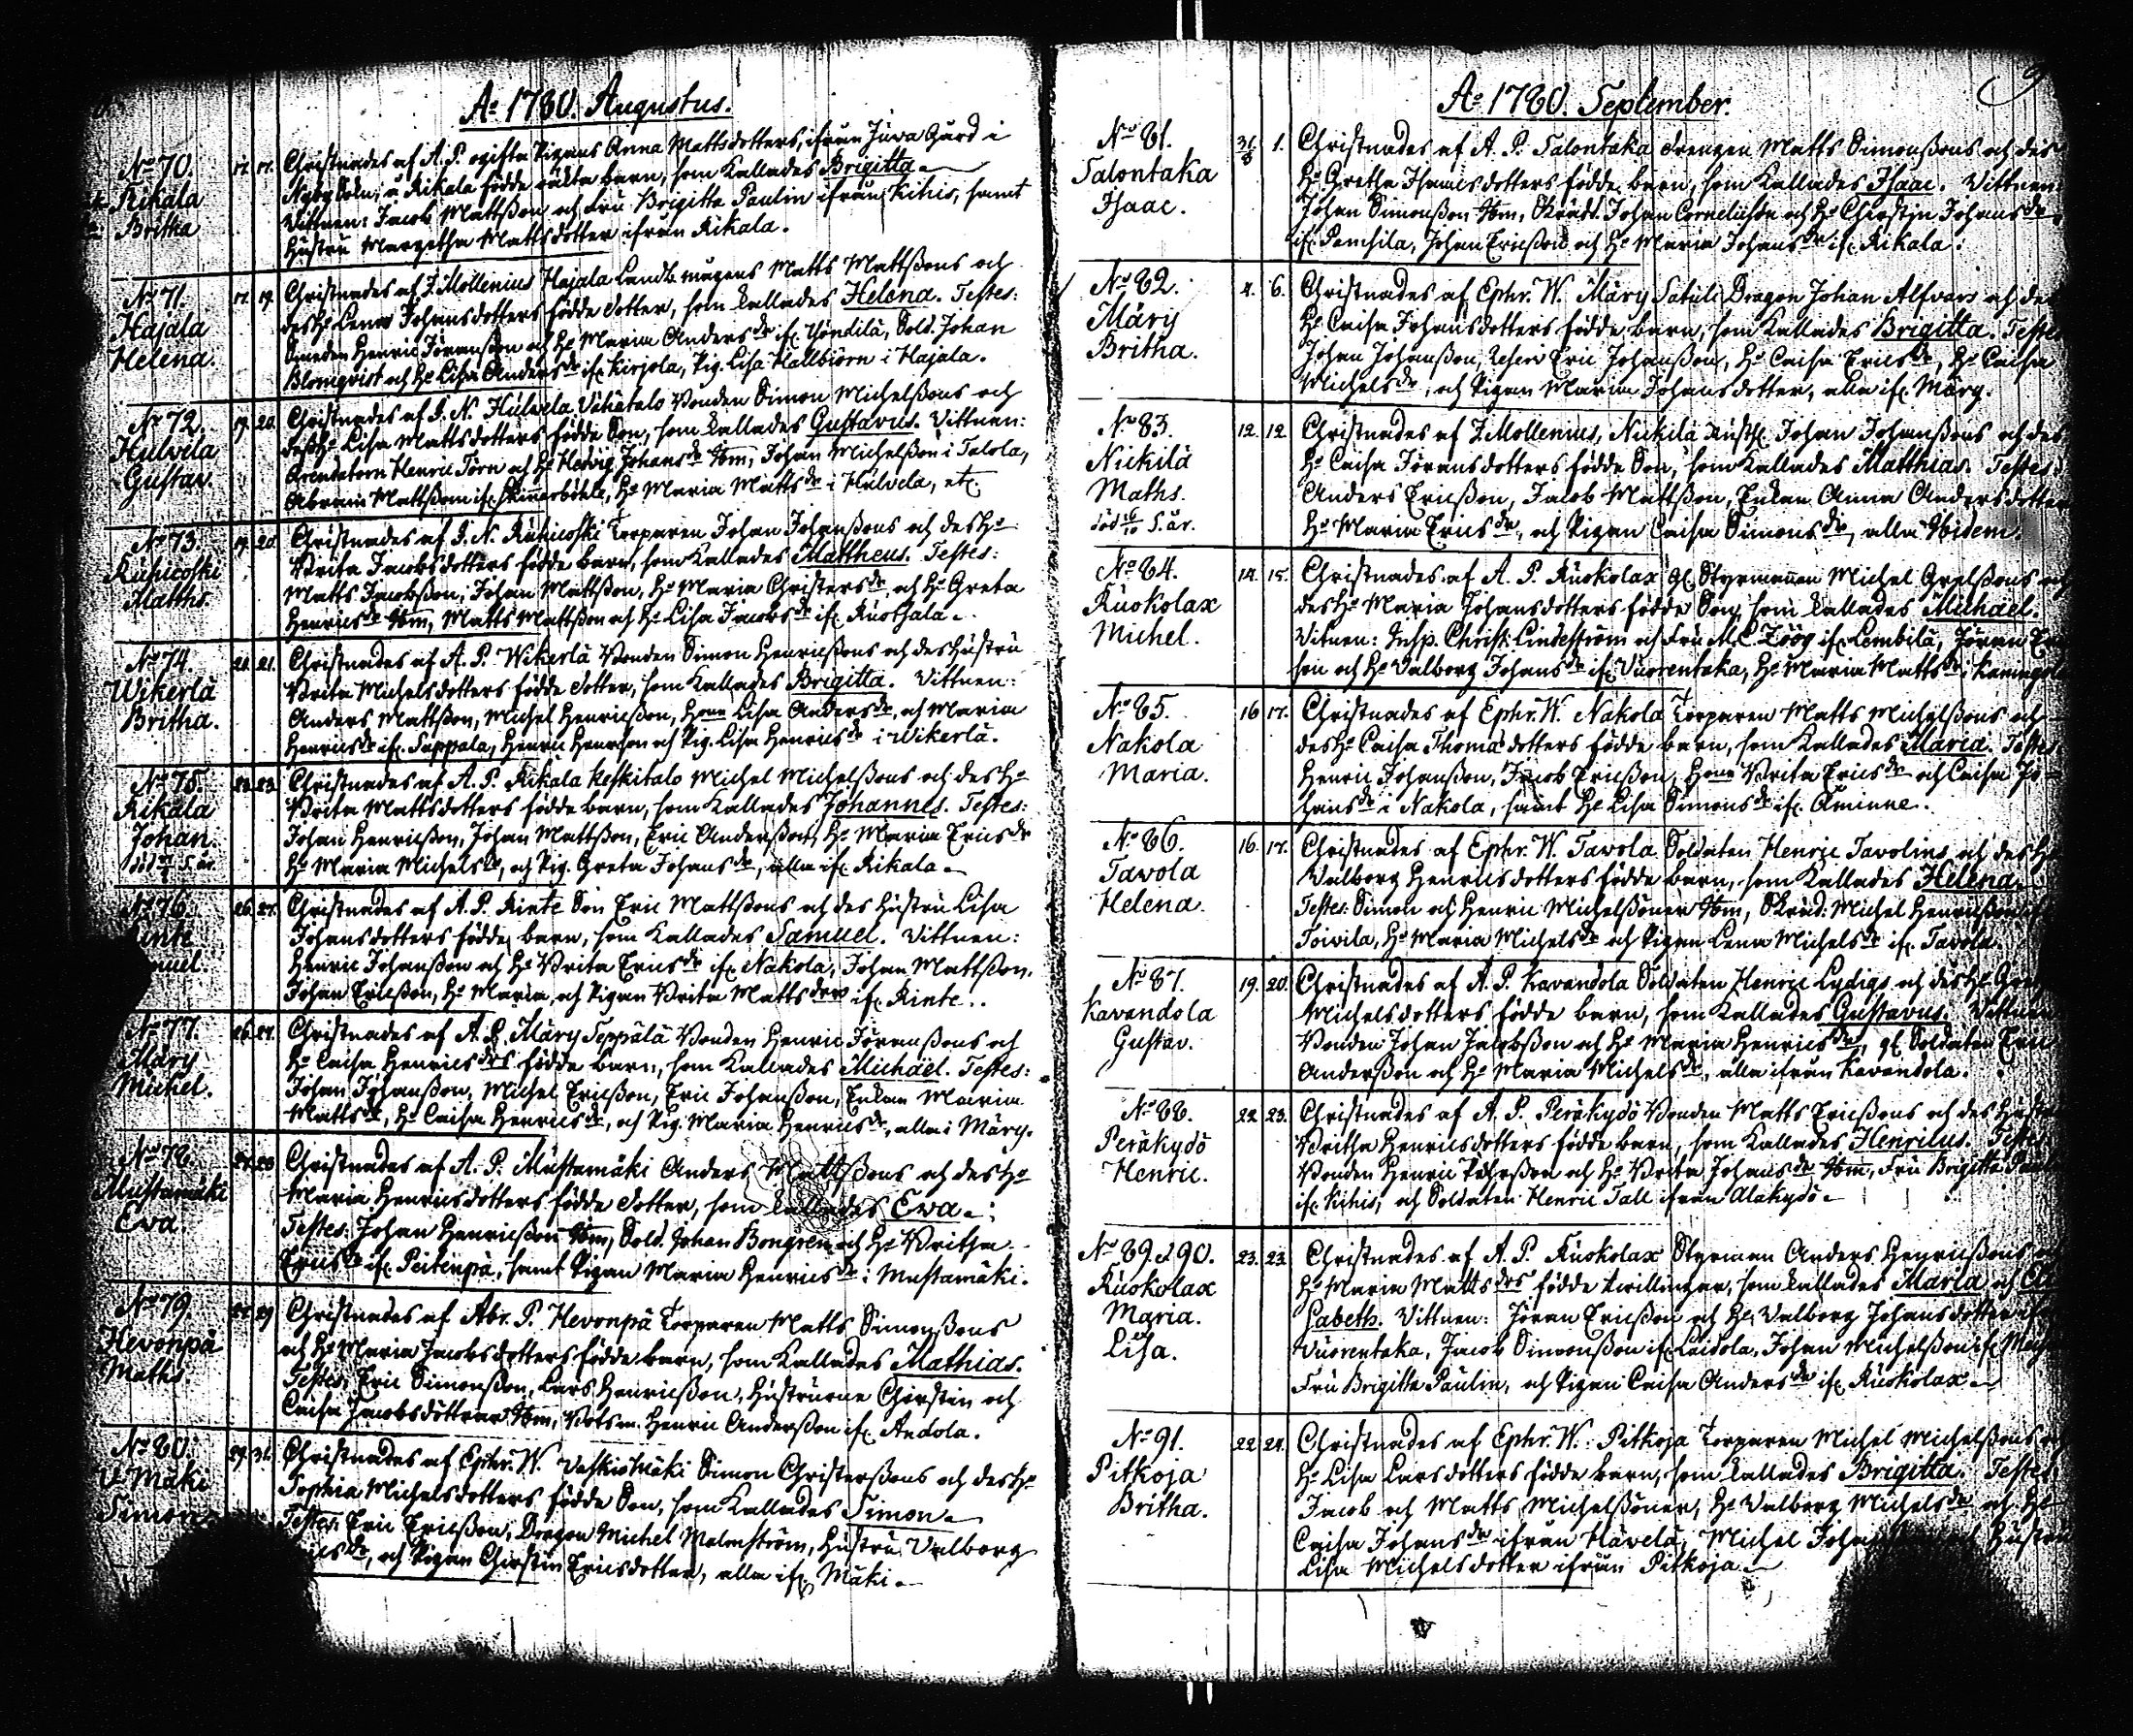 Ao 1780. Augustus.
No 70.
Rikala
Britha
17. 17.
Christnades af A. P. ogifta Pigans Anna Mattsdotters, ifrån Juva Gård i
Nyby Sokn, å Rikala födde oäkta barn, som Kallades Brigitta.
Vittnen: Jacob Mattsson och Fru Brigitta Paulin ifrån Kihis, samt
Hustru Margetha Mattsdotter ifrån Rikala.
No 71.
Hajala
Helena.
17. 19.
Christnades af J. Mollenius Hajala Landb. mågens Matts Mattssons och
des Ho Lena Johansdotters födde dotter, som kallades Helena. Testes:
Smeden Henric Jöransson och Ho Maria Anders dr if. Yöndilä, Sold. Johan
Blomqvist och Ho Lisa Anders dr if. Kirjola, Pig. Lisa Hallbiörn i Hajala.
No 72.
Hulvela
Gustav.
19. 20.
Christnades af J. N. Hulvela Vähätalo Bonden Simon Michelssons och
dess Ho Lisa Mattsdotters födde Son, som kallades Gustavus. Vittnen:
Arendatorn Henric Törn och Ho Hedvig Johans dr ibm, Johan Michelsson i Talola,
Abram Mattsson if. Skinnarböhle, Ho Maria Matts dr i Hulvela, etc.
No 73.
Kuhicoski
Matths.
19. 20.
Christnades af J. N. Kuhicoski Torparen Johan Johanssons och des Ho
Brita Jacobsdotters födde barn, som Kallades Mattheus. Testes:
Matts Jacobsson, Johan Mattsson, Ho Maria Christers dr, och Ho Greta
Henrics dr ibm, Matts Mattsson och Ho Lisa Jacobs dr if. Ruotsala.
No 74.
Wikerlä
Britha.
20. 21.
Christnades af A. P. Wikerlä Bonden Simon Henricssons och des Hustru
Brita Michelsdotters födde dotter, som Kallades Brigitta. Vittnen:
Anders Mattsson, Michel Henricsson, Hona Lisa Anders dr, och Maria
Henrics dr if. Pappala, Henric Henricsson och Pig. Lisa Henrics dr i Wikerlä.
No 75.
Rikala
Johan.
23. 23.
Christnades af A. P. Rikala Keskitalo Michel Michelssons och des Ho
Brita Mattsdotters födde barn, som Kallades Johannes. Testes:
Johan Henricsson, Johan Mattsson, Eric Andersson, Ho Maria Erics dr
Ho Maria Michels dr, och Pig. Greta Johans dr, alla if. Rikala.
No 76.
26. 27.
Christnades af A. P. Rinte Son Eric Mattssons och des Hustru Lisa
Johansdotters födde barn, som Kallades Samuel. Vittnen:
Henric Johansson och Ho Brita Erics dr if. Nakola, Johan Mattsson,
Johan Ericsson, Ho Maria, och Pigan Brita Matts drar if. Rinte.
No 77.
Märy
Michel.
26. 27.
Christnades af A. P. Märy Seppälä Bonden Henric Jöranssons och
Ho Caisa Henrics drs födde barn, som Kallades Michaël. Testes:
Johan Johansson, Michel Ericsson, Eric Johansson, Enkan Maria
Matts dr, Ho Caisa Henrics dr, och Pig. Maria Henrics dr, alla i Märy.
No 78.
Mustamäki
Eva.
27. 28.
Christnades af A. P. Mustamäki Anders Mattssons och des Ho
Maria Henricsdotters födde dotter, som kallades Eva.
Testes: Johan Henricsson ibm, Sold. Johan Bongren och Ho Britha
Erics dr if. Peitenpä, samt Pigan Maria Henrics dr i Mustamäki.
No 79.
Hevonpä
Maths.
27. 29.
Christnades af Abr. P. Hevonpä Torparen Matts Simonssons
och Ho Maria Jacobsdotters födde barn, som Kallades Mathias.
Testes: Eric Simonsson, Lars Henricsson, Hustrurne Chirstin och
Caisa Jacobsdöttrar ibm, Botsm. Henric Andersson if. Andola.
No 80.
V-Mäki
Simon.
29. 31.
Christnades af Ephr. W. Vaskiomäki Simon Christerssons och des Ho
Sophia Michelsdotters födde Son, som Kallades Simon.
Testes: Eric Ericsson, Dragon Michel Malmström, Hustru Valborg
dr, och Pigan Chirstin Ericsdotter, alla if. Mäki.
Ao 1780. September.
No 81.
Talontaka
Isaac.
31/8 1.
Christnades af A. P. Talontaka drengen Matts Simonssons och des
Ho Gretha Isaacsdotters födde barn, som Kallades Isaac. Vittnen:
Johan Simonsson ibm, Skrädd. Johan Cornelius och Ho Chirstin Johans dr
if. Pamhila, Johan Ericsson och Ho Maria Johans dr if. Rikala.
No 82.
Märy
Britha.
4. 6.
Christnades af Ephr. W. Märy Satuli Dragon Johan Alfvars och des
Ho Caisa Johansdotters födde barn, som Kallades Brigitta. Testes
Johan Johansson, Reserv Eric Johansson, Ho Caisa Erics dr, Ho Caisa
Michels dr, och Pigan Maria Johansdotter, alla if. Märy.
No 83.
Nickilä
Maths.
död 16/10 5. år.
12. 12.
Christnades af J. Mollenius, Nickilä Rusth. Johan Johanssons och des
Ho Caisa Jöransdotters födde Son, som Kallades Matthias. Testes:
Anders Ericsson, Jacob Mattsson, Enkan Anna Andersdotter
Ho Maria Erics dr, och Pigan Caisa Simons dr, alla Ibidem.
No 84.
Ruokolax
Michel.
14. 15.
Christnades af A. P. Ruokolax gl. Styrmannen Michel Grelssons och
des Ho Maria Johansdotters födde Son, som kallades Michael.
Vitnen: Insp. Christ. Lindeström och Fru M. C. Zöög if. Lembilä, Jöran
son och Ho Valborg Johans dr if. Vuorentaka, Ho Maria Matts dr i
No 85.
Nakola
Maria.
16 17.
Christnades af Ephr. W. Nakola Torparen Matts Michelssons och
des Ho Caisa Thomædotters födde barn, som Kallades Maria. Testes:
Henric Johansson, Jacob Ericsson, Hona Brita Erics dr och Caisa Jo-
hans dr i Nakola, samt Ho Lisa Simons dr if. Åminne.
No 86.
Tavola
Helena.
16. 17.
Christnades af Ephr. W. Tavola Soldaten Henric Tavolins och des Ho
Valborg Henricsdotters födde barn, som Kallades Helena.
Testes: Simon och Henric Michelssöner ibm, Skräd: Michel Henricsson
Toivila, Ho Maria Michels dr och Pigan Lena Michels dr if. Tavola.
No 87.
Kavandola
Gustav.
19. 20.
Christnades af A. P. Kavandola Soldaten Henric Lydigs och des Ho
Michelsdotters födde barn, som Kallades Gustavus. Vittnen
Bonden Johan Jacobsson och Ho Maria Henrics dr, gl. Soldaten Eric
Andersson och Ho Maria Michels dr, alla ifrån Kavandola.
No 88.
Peräkydö
Henric.
22 23.
Christnades af A. P. Peräkydö Bonden Matts Ericssons och des Hustru
Britha Henricsdotters födde barn, som Kallades Henricus. Testes:
Bonden Henric Johansson och Ho Brita Johans dr ibm, Fru Brigitta
if. Kihis, och Soldaten Henric Tall ifrån Alakydö.
No 89. & 90.
Ruokolax
Maria.
Lisa.
23. 23.
Christnades af A. P. Ruokolax Styrman Anders Henricssons
Ho Maria Matts drs födde twillingar, som kallades Maria och Eli
sabeth. Vittnen: Jöran Ericsson och Ho Valborg Johansdotter
Vuorentaka, Jacob Simonsson if. Laidola, Johan Michelsson if.
Fru Brigitta Paulin, och Pigan Caisa Anders dr if. Ruokolax.
No 91.
Pitkoja
Britha.
22 24.
Christnades af Ephr. W. Pitkoja Torparen Michel Michelssons
Ho Lisa Larsdotters födde barn, som kallades Brigitta. Testes:
Jacob och Matts Michelssöner, Ho Valborg Michels dr och Ho
Caisa Johans dr ifrån Hävelä, Michel Hustru
Lisa Michelsdotter ifrån Pitkoja.